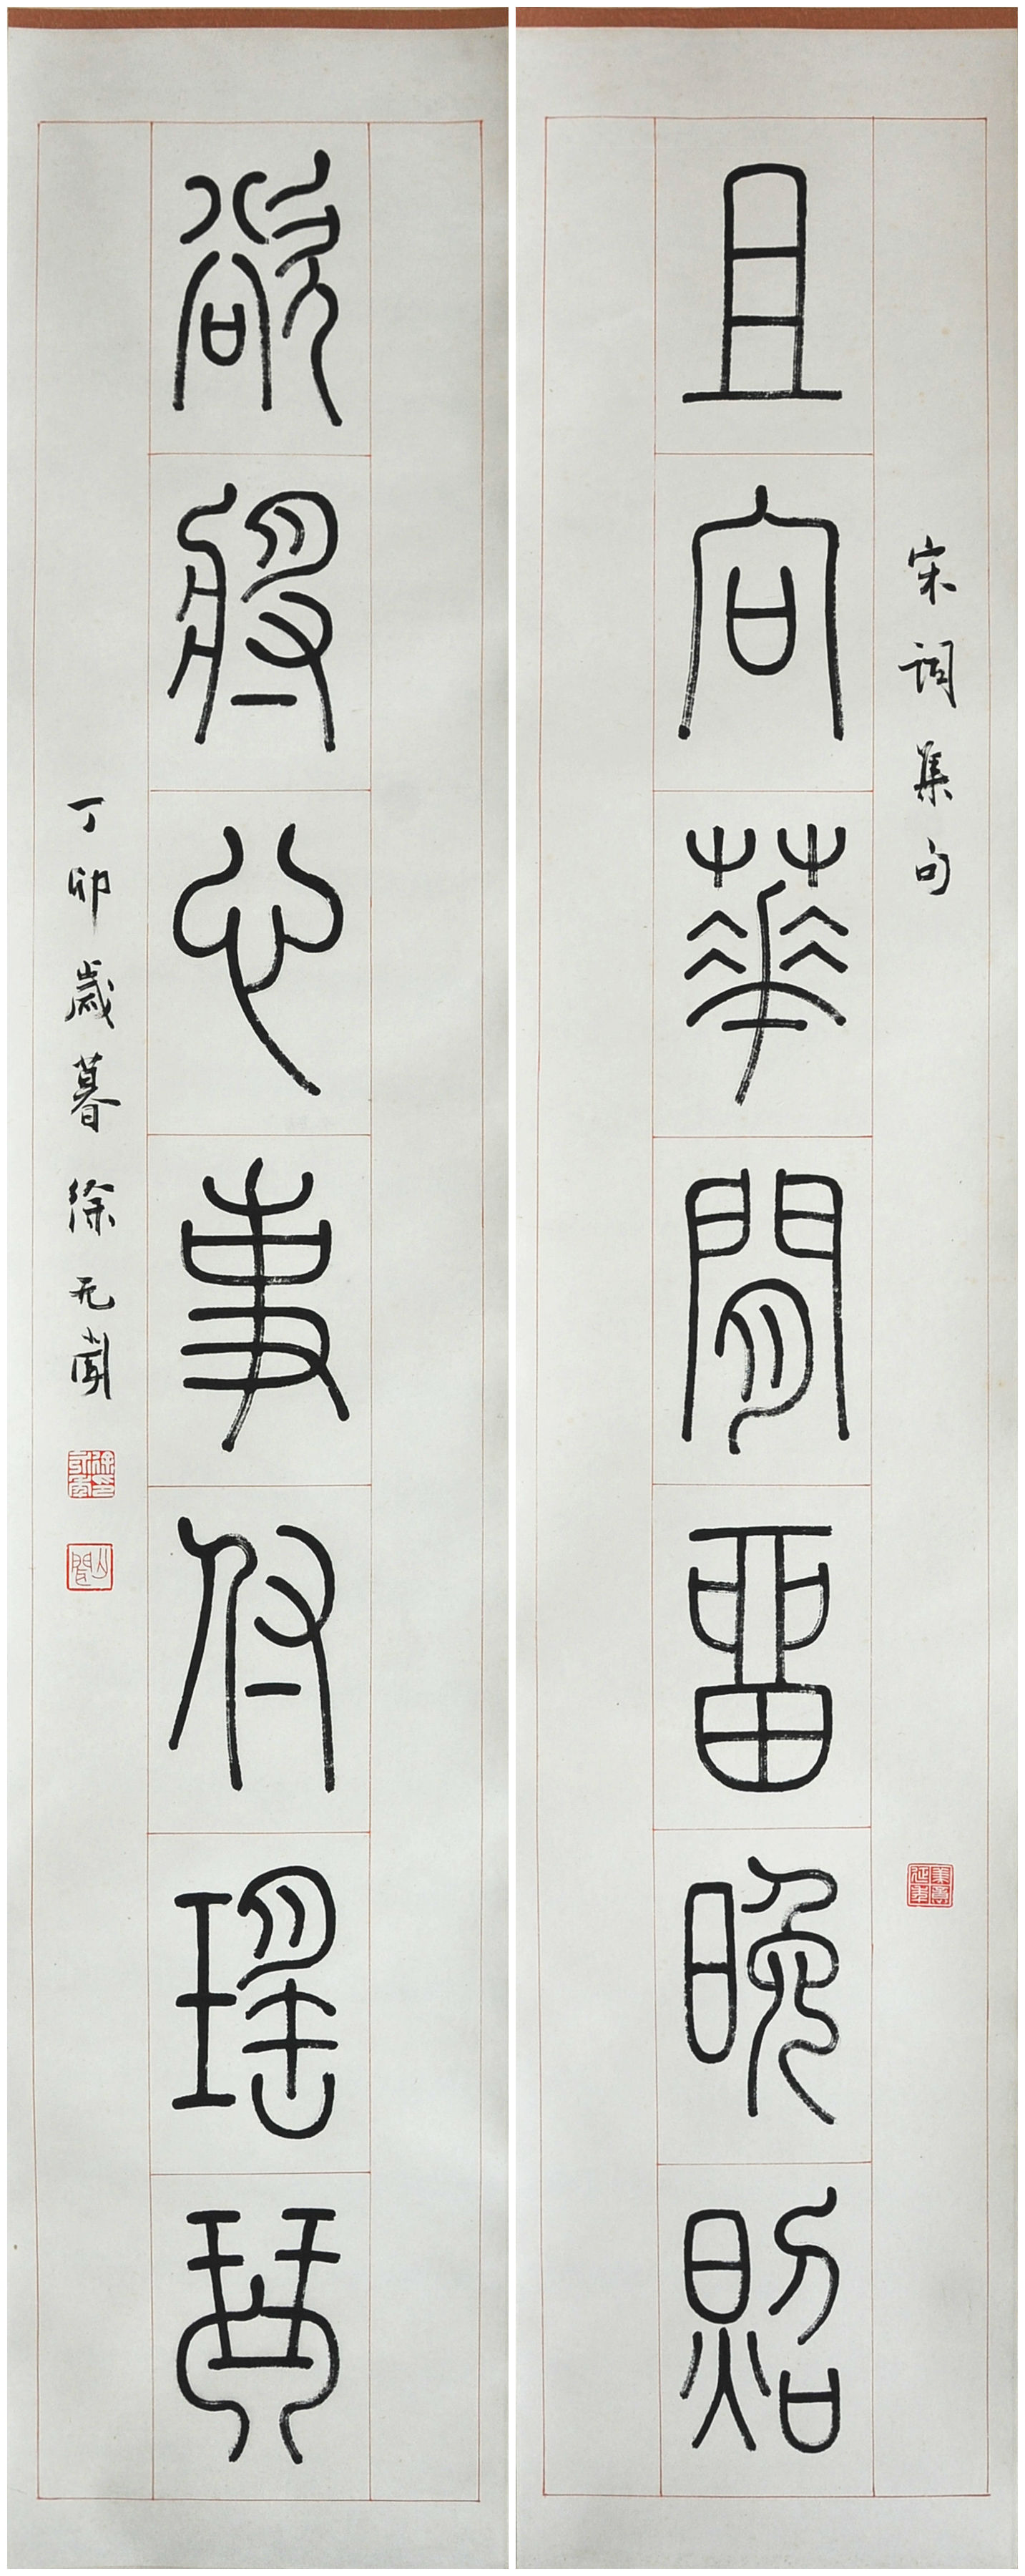 宋詞集句
且向華間畱晚照
欲將心事付瑤琴
丁卯歲暮徐无聞